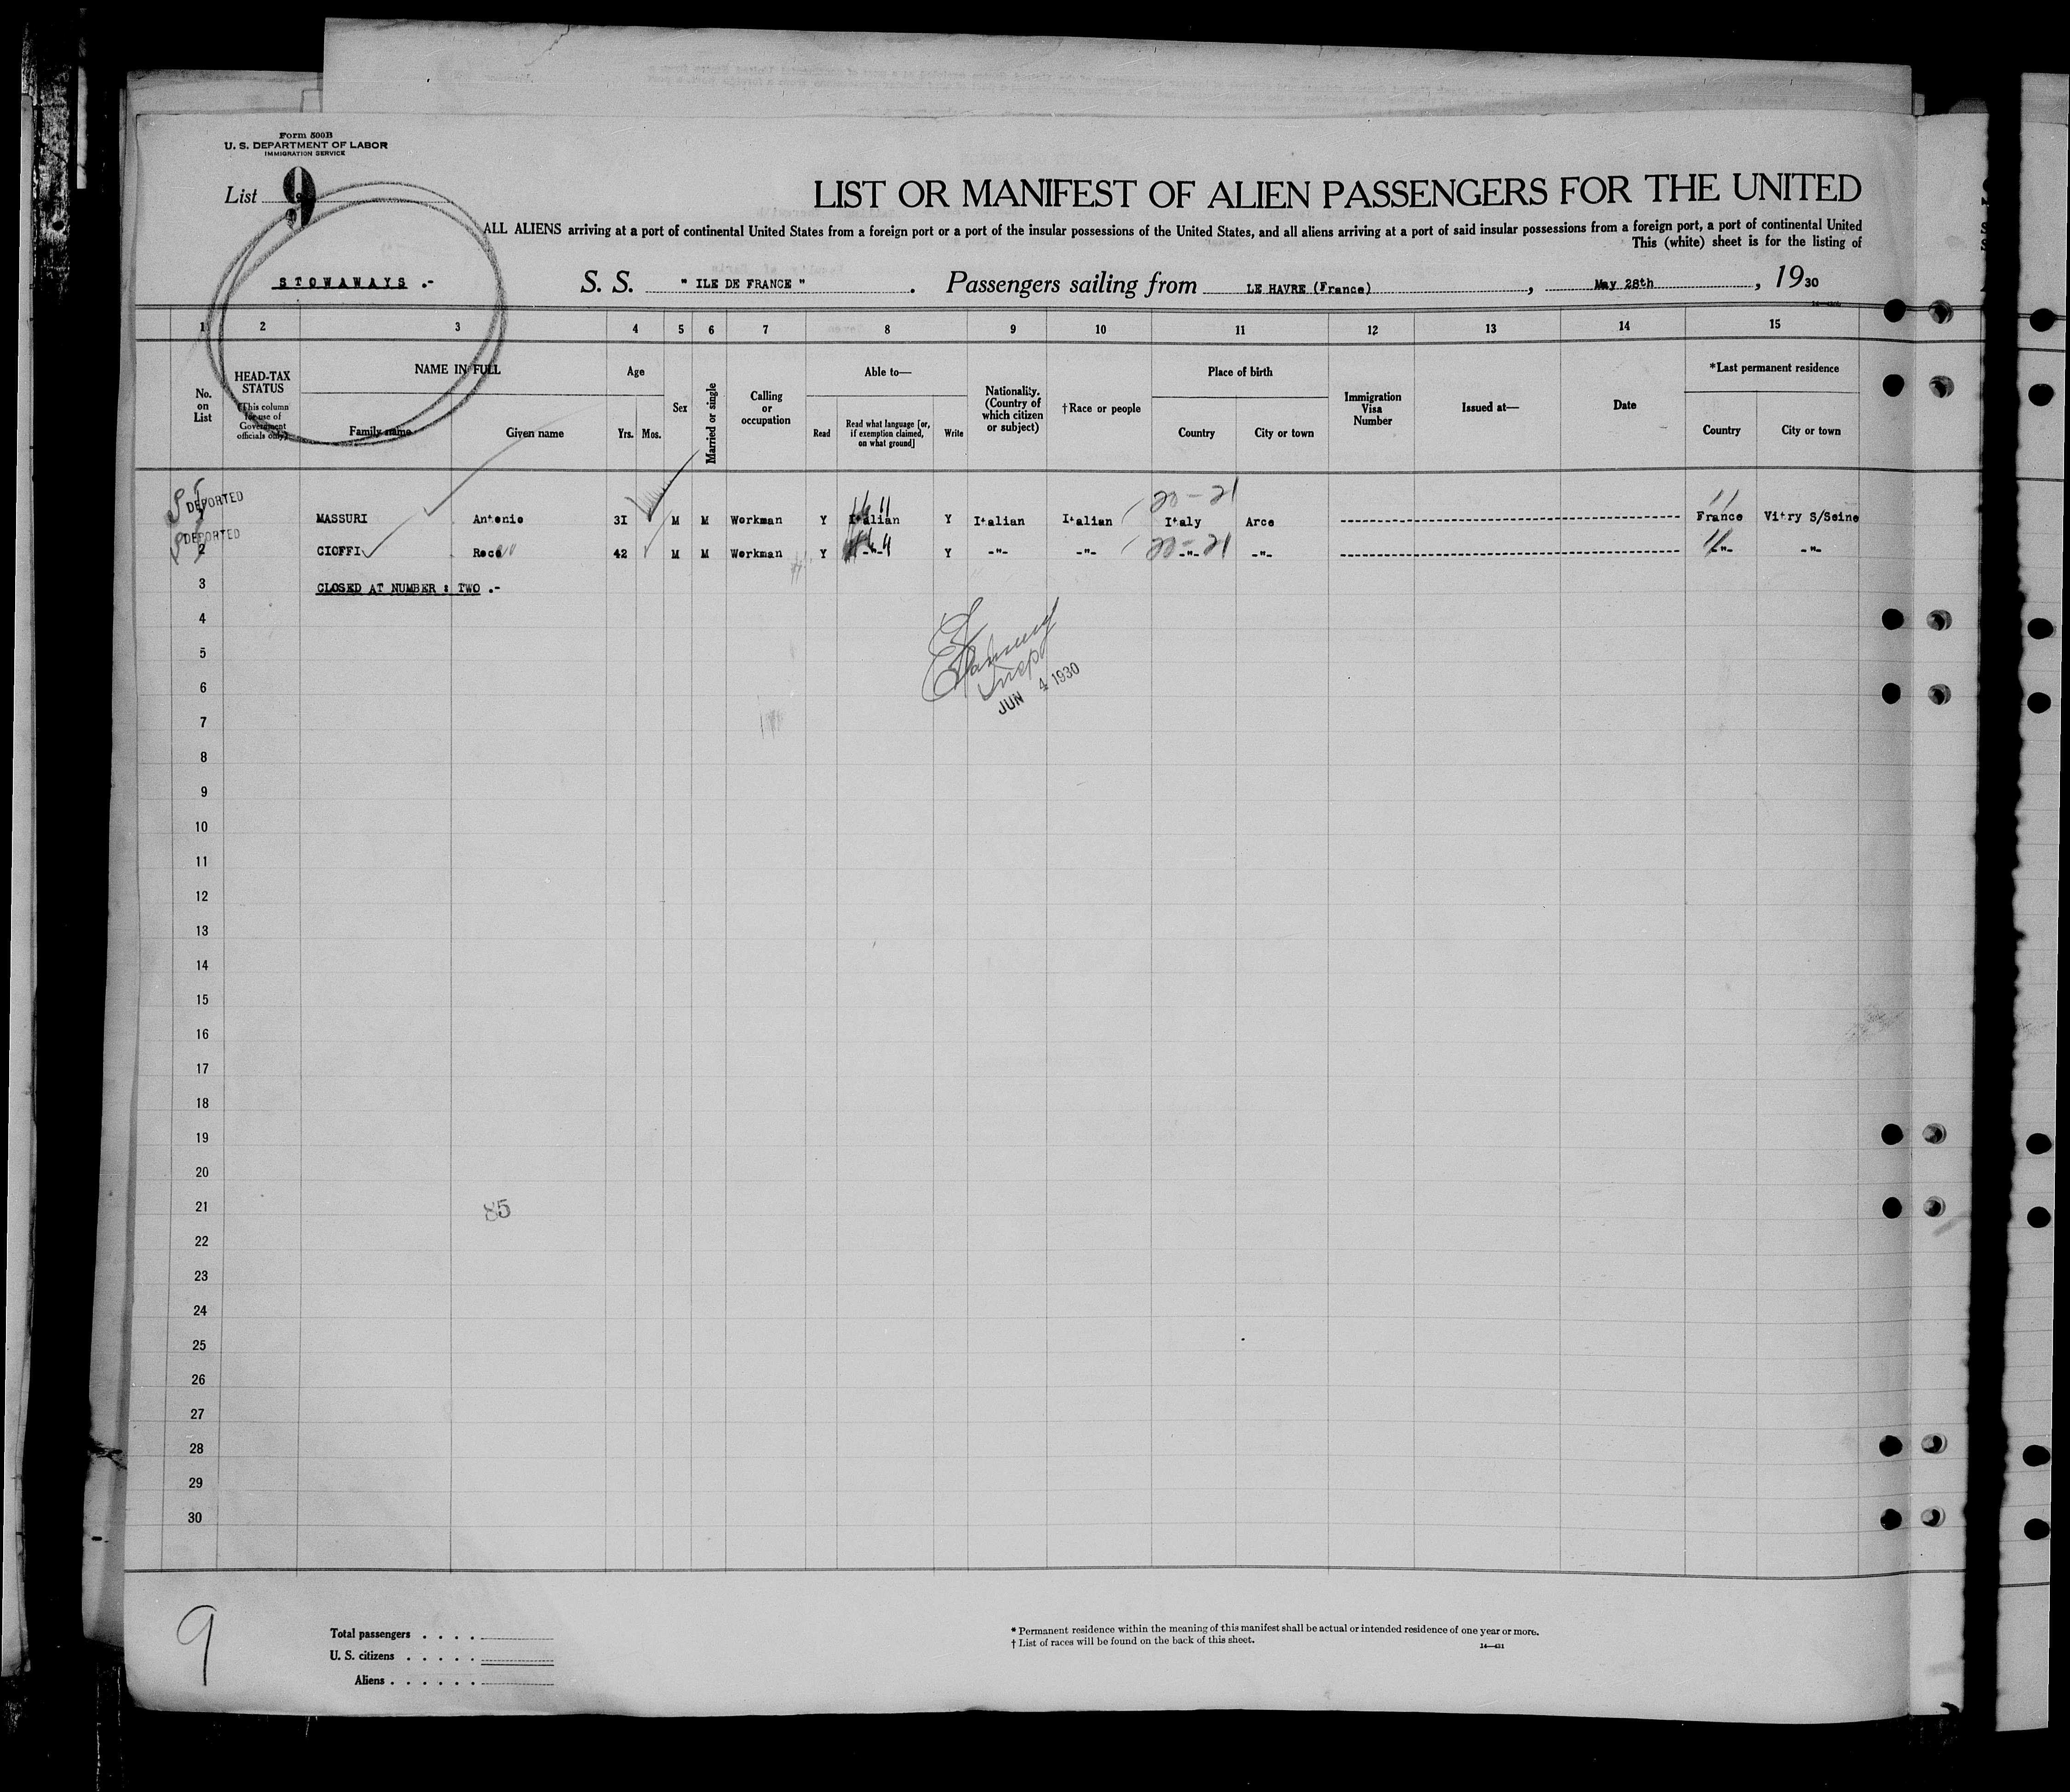 Form 500B
U. S. DEPARTMENT OF LABOR
IMMIGRATION SERVICE
List 9
LIST OR MANIFEST OF ALIEN PASSENGERS FOR THE UNITED
ALL ALIENS arriving at a port of continental United States from a foreign port or a port of the insular possessions of the United States, and all aliens arriving at a port of said insular possessions from a foreign port, a port of continental United
This (white) sheet is for the listing of
STOWAWAYS .- S. S. " ILE DE FRANCE " . Passengers sailing from LE HAVRE (France) , May 28th , 1930
1 2 3 4 5 6 7 8 9 10 11 12 13 14 15
No. on List
HEAD-TAX STATUS
(This column for use of Government officials only)
NAME IN FULL
Family name Given name
Age
Yrs. Mos.
Sex
Married or single
Calling or occupation
Able to—
Read
Read what language [or, if exemption claimed, on what ground]
Write
Nationality. (Country of which citizen or subject)
†Race or people
Place of birth
Country City or town
Immigration Visa Number
Issued at—
Date
*Last permanent residence
Country City or town
DEPORTED
20-21
MASSURI Antonio 3I M M Workman Y Italian Y Italian Italian Italy Arce France Vitry S/Seine
DEPORTED
2 CIOFFI Roco 42 M M Workman Y -"- Y -"- -"- 20-21 -"- -"- -"- -"-
3 CLOSED AT NUMBER : TWO .-
4
5
6
JUN 4 1930
7
8
9
10
11
12
13
14
15
16
17
18
19
20
21
85
22
23
24
25
26
27
28
29
30
9
Total passengers . . . .
U. S. citizens . . . . .
Aliens . . . . . .
* Permanent residence within the meaning of this manifest shall be actual or intended residence of one year or more.
† List of races will be found on the back of this sheet.